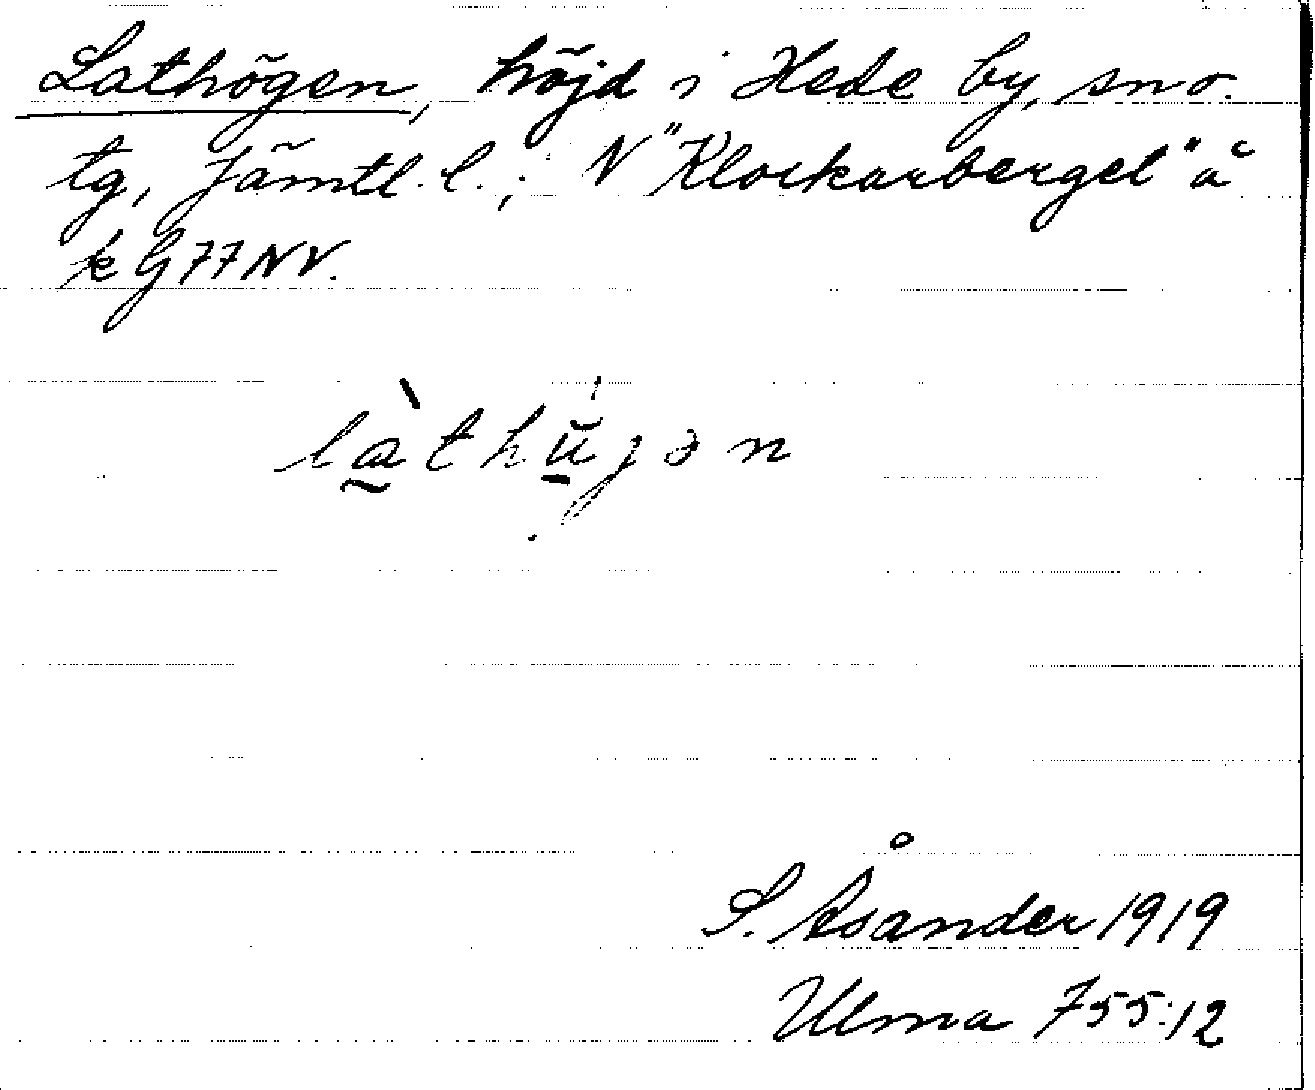 Lathögen, höjd i Hede by, sn o.
tg, Jämtl. l.; N "Klockarberget" å
k G77NV.
làthŭjən
S. Åsander 1919
Ulma 755:12